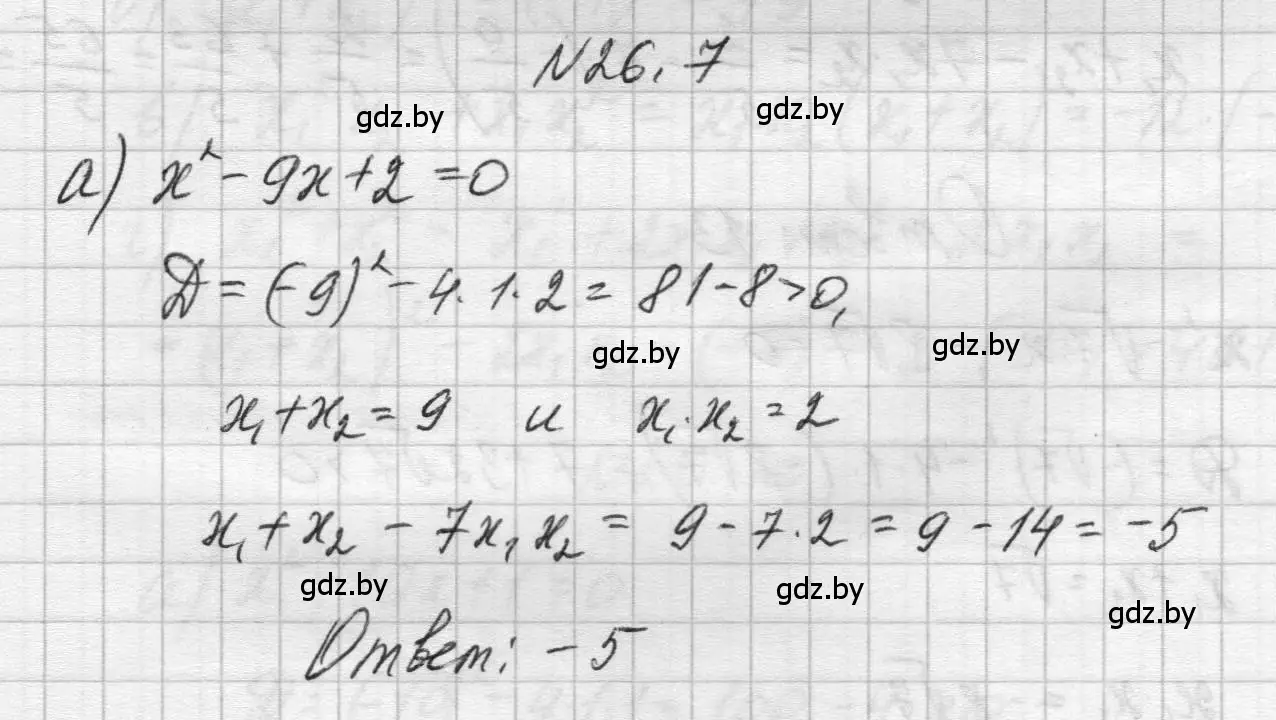 N26.7
gdz.by gdz.by
а) x² - 9x + 2 = 0
Д = (-9)² - 4·1·2 = 81 - 8 > 0,
gdz.by gdz.by
x₁ + x₂ = 9 и x₁·x₂ = 2
x₁ + x₂ - 7x₁x₂ = 9 - 7·2 = 9 - 14 = -5
gdz.by gdz.by gdz.by
Ответ: -5